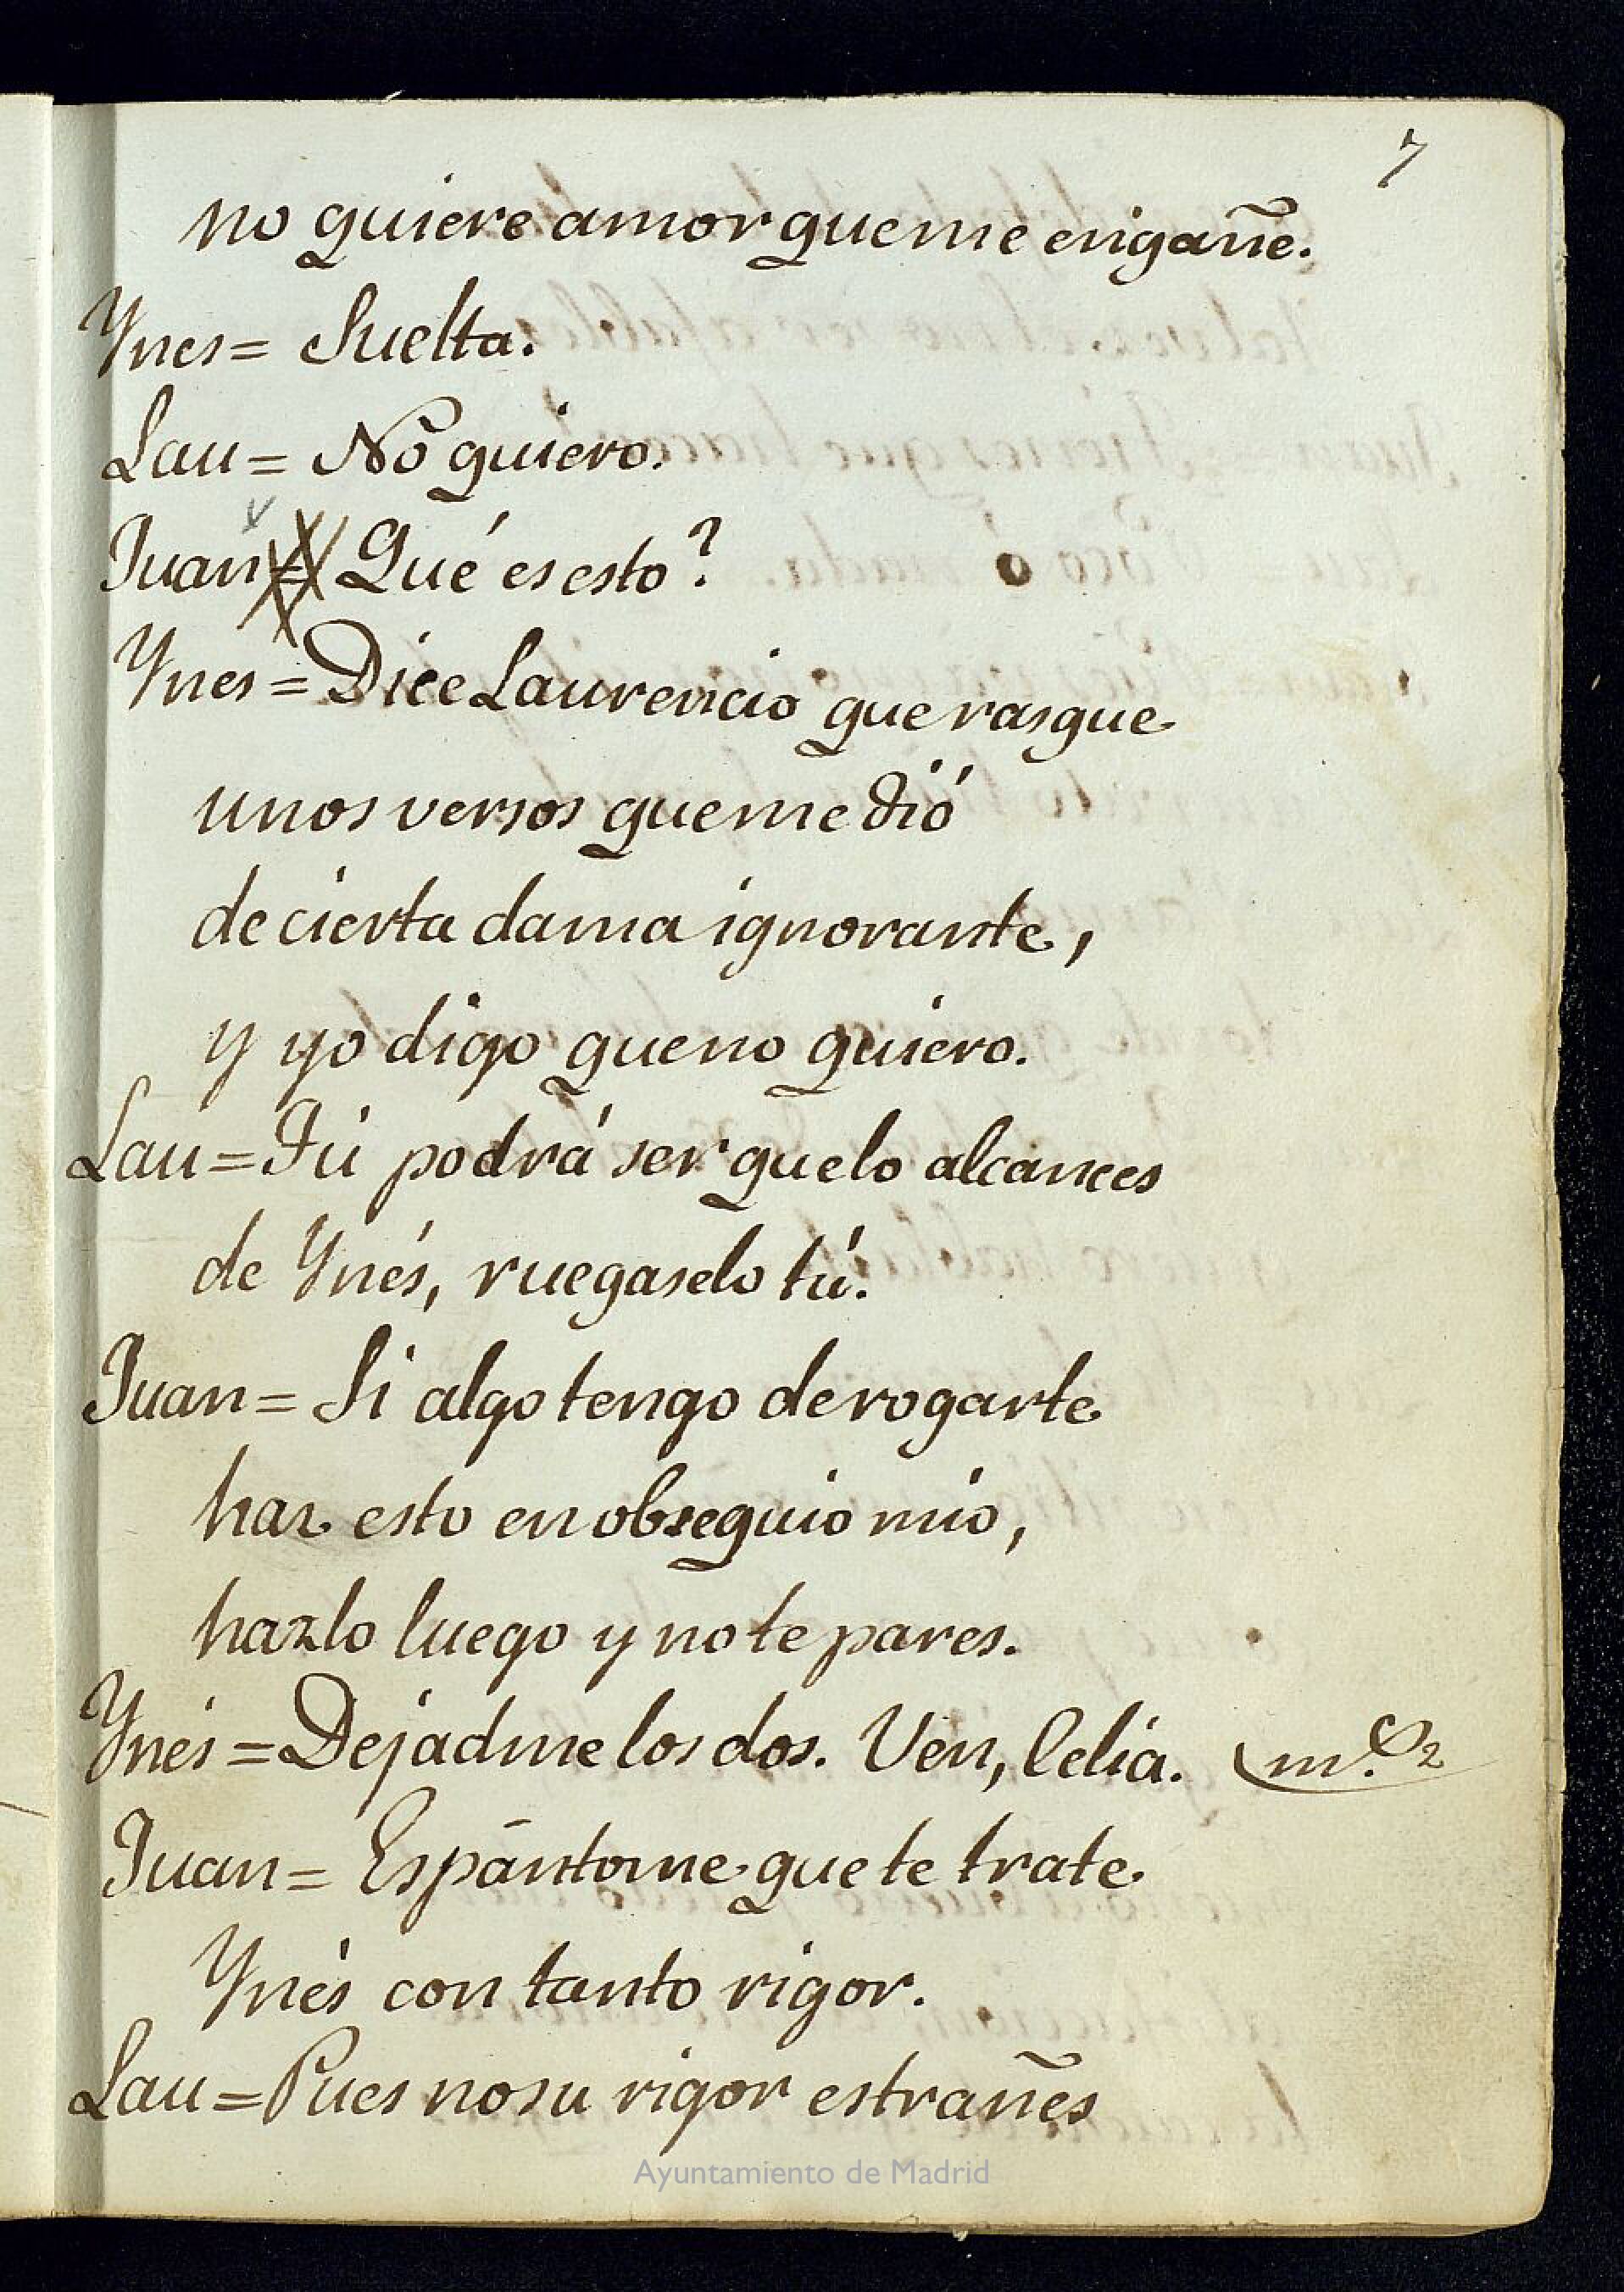 7
no quiere amor que me engañe.
Ynes = Suelta.
Lau = No quiero.
Juan = Qué es esto?
Ynes = Dice Laurencio que rasgue
unos versos que me dió
de cierta dama ignorante,
y yo digo que no quiero.
Lau = Tú podrá ser que lo alcances
de Ynés, ruegaselo tú.
Juan = Si algo tengo de rogarte
haz esto en obsequio mio,
hazlo luego y no te pares.
Ynés = Dejadme los dos. Ven, Celia.
Juan = Espántome que te trate
Ynés con tanto rigor.
Lau = Pues no su rigor estrañes
Ayuntamiento de Madrid